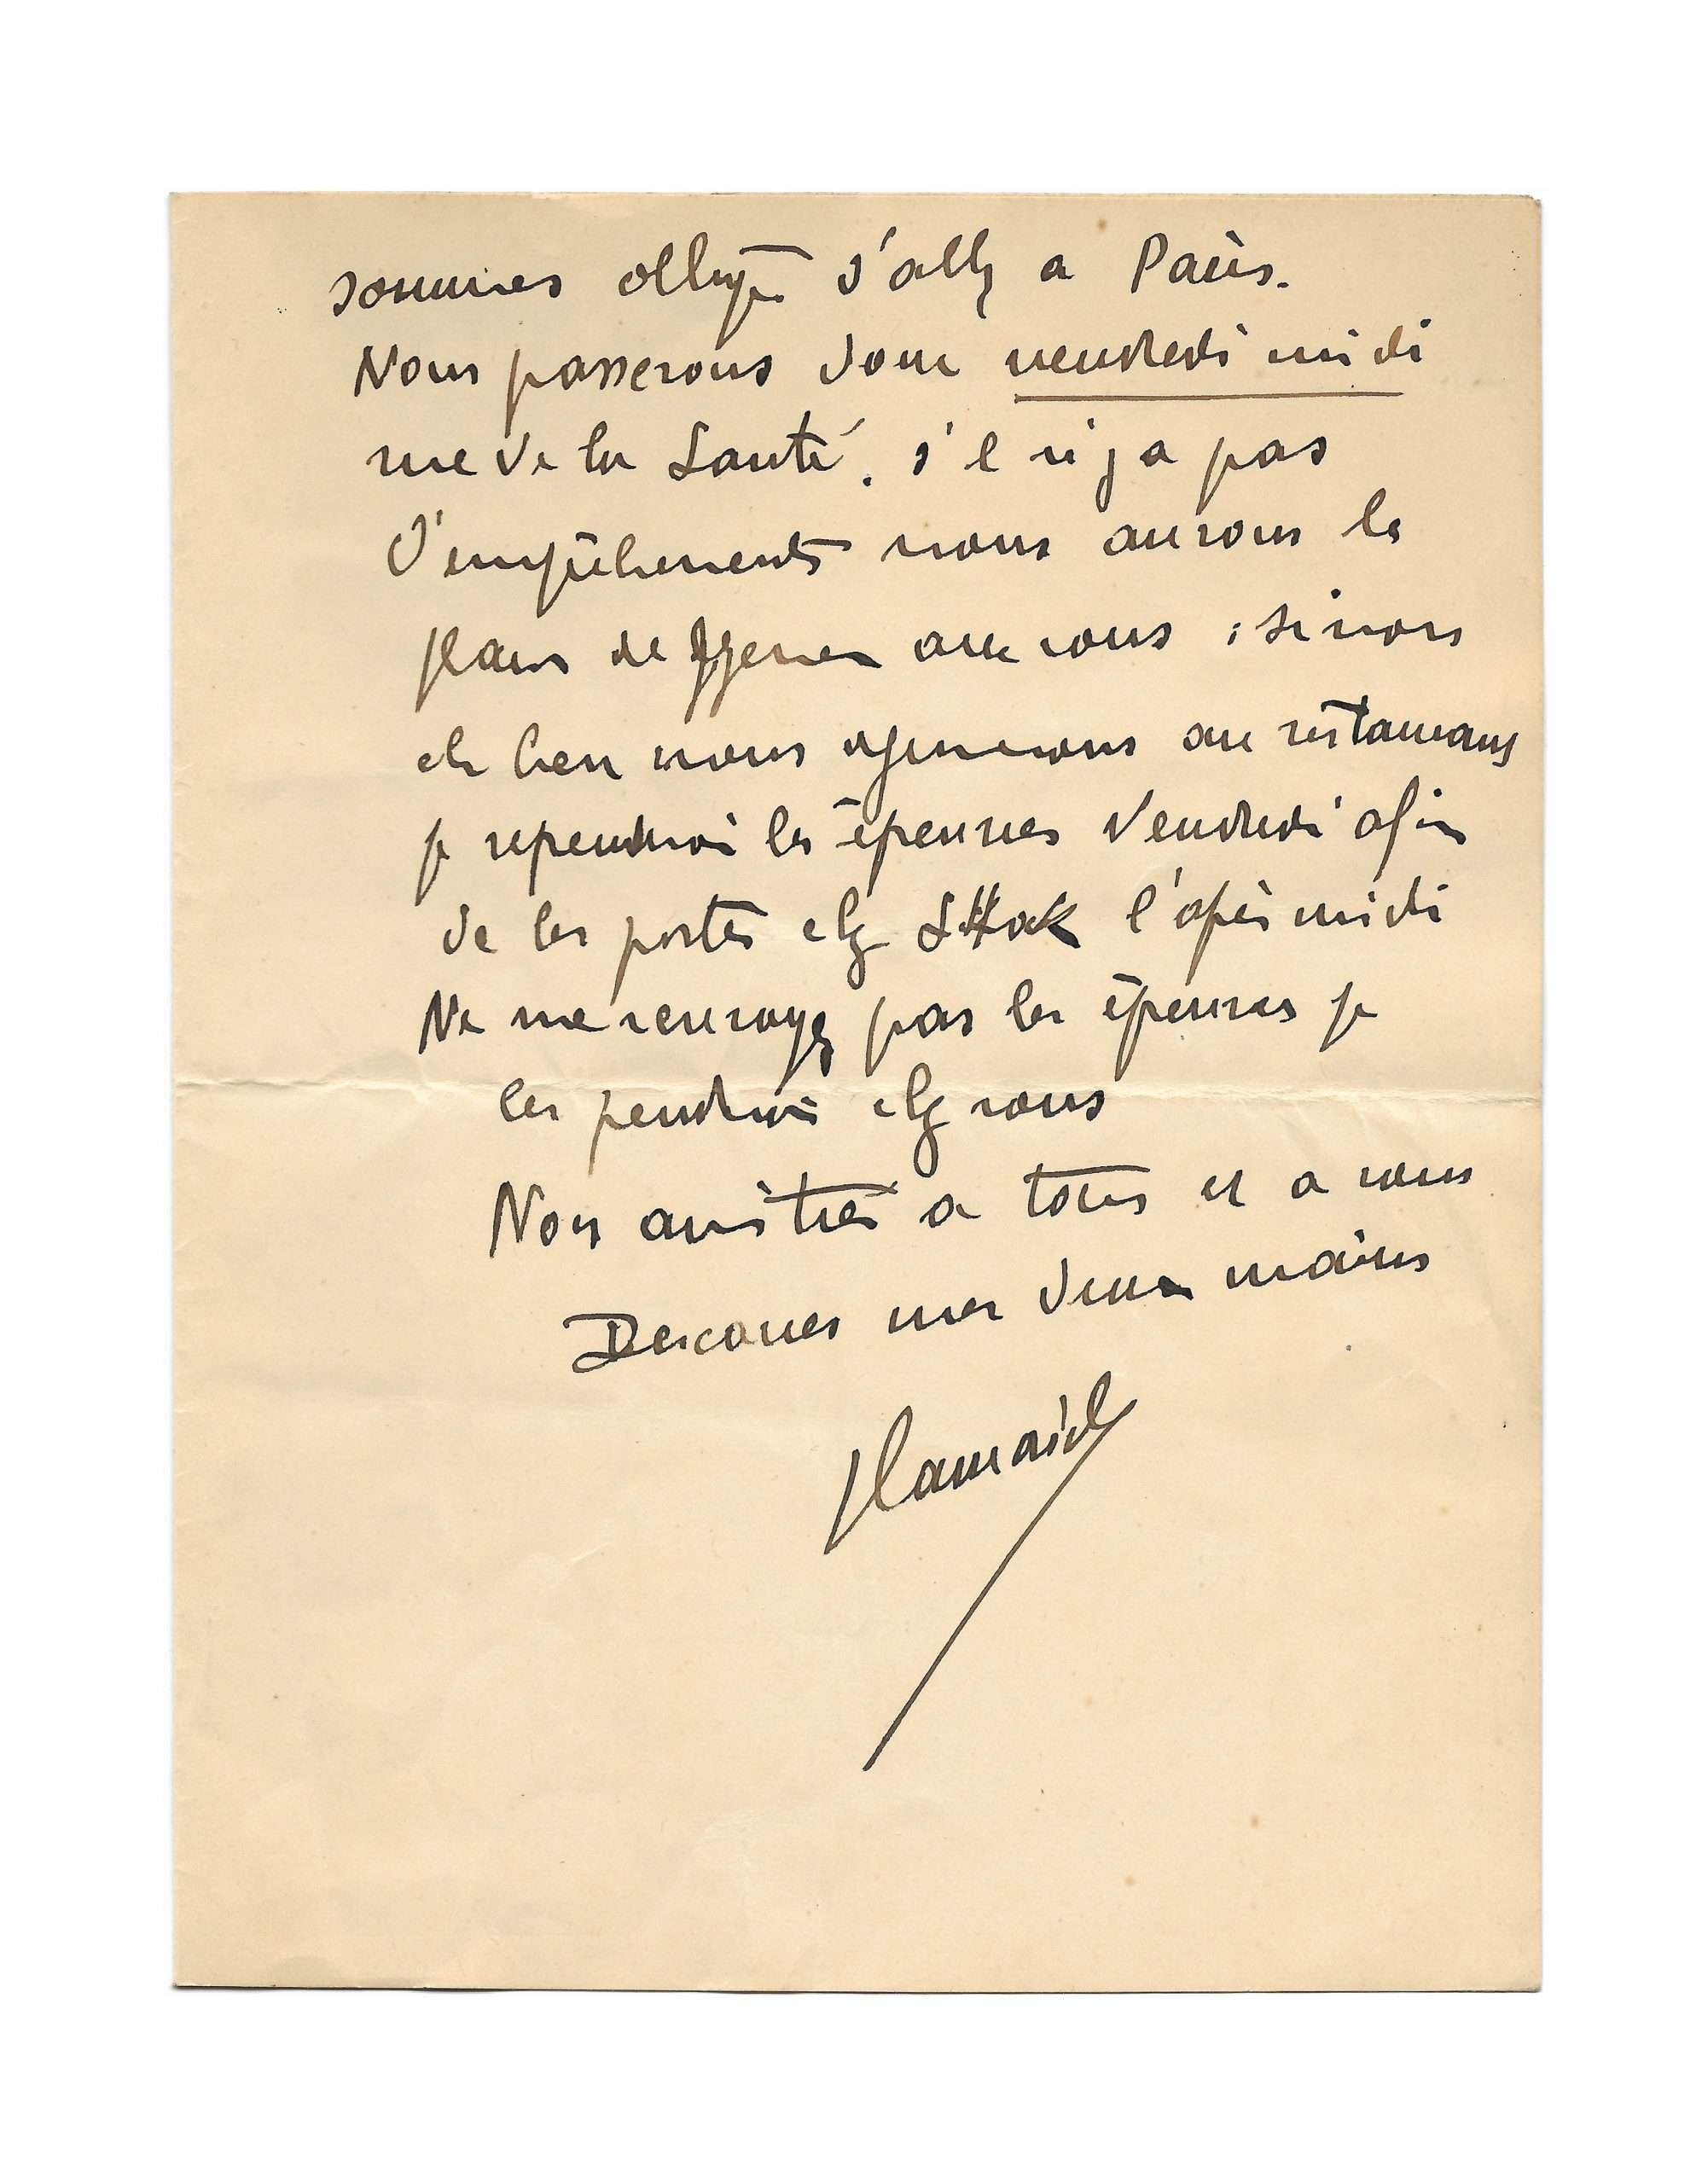 sommes obligés d'aller a Paris.
Nous passerons donc vendredi midi
rue de la Santé. s'il n'y a pas
d'empêchements nous aurons le
plaisir de déjeuner avec vous ; sinon
eh bien nous déjeunerons au restaurant
je reprendrai les épreuves Vendredi afin
de les porter chez Stock l'après midi
Ne me renvoyez pas les épreuves je
les prendrai chez vous
Nos amitiés a tous et a vous
Descaves mes deux mains
Vlaminck